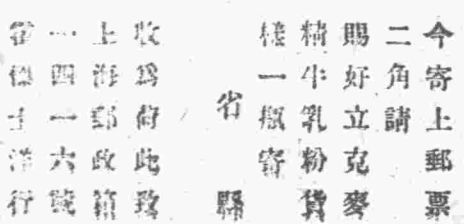 今寄上郵票
二角請
賜好立克麥
精牛乳粉貨
樣一瓶寄
省縣
收爲荷此致
上海郵政箱
一四一六號
德士洋行